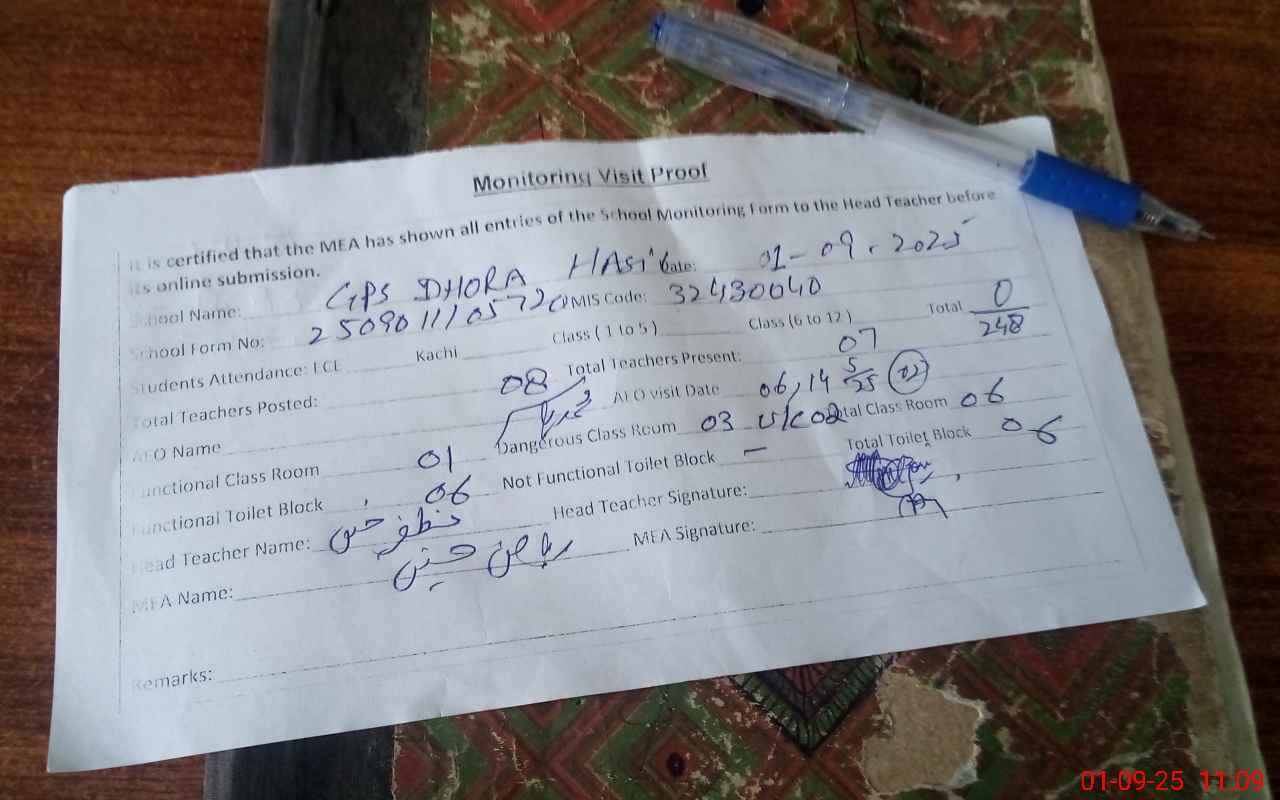 Monitoring Visit Proof
It is certified that the MEA has shown all entries of the School Monitoring Form to the Head Teacher before
its online submission.
School Name: GPS DHORA Date: 01-09.2025
School Form No: 25090111105720 EMIS Code: 32430040
Students Attendance: ECE Kachi Class ( 1 to 5 ) Class (6 to 12 ) Total 0/248
Total Teachers Posted: 08 Total Teachers Present: 07
AEO Name AEO visit Date 06, 14 5/25 02
Functional Class Room 01 Dangerous Class Room 03 U/C 02 Total Class Room 06
Functional Toilet Block 06 Not Functional Toilet Block – Total Toilet Block 06
Head Teacher Name: Head Teacher Signature:
MEA Name: MEA Signature:
Remarks:
01-09-25 11:09